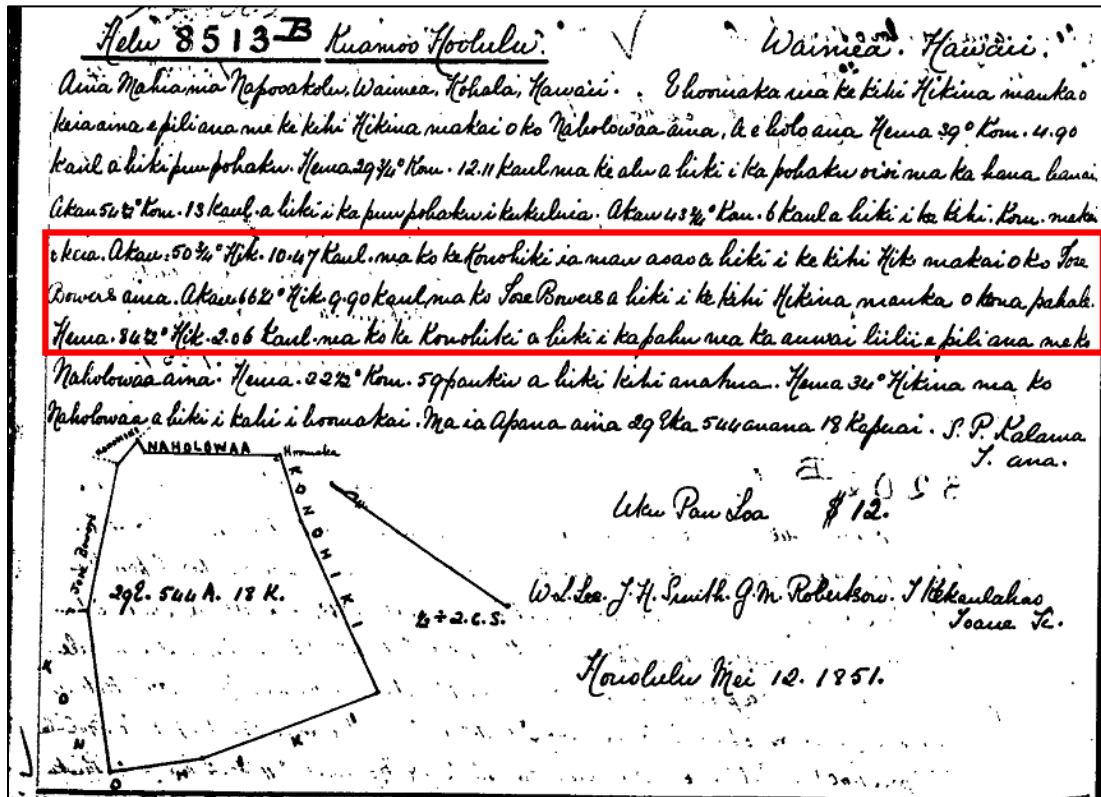 Helu 8513-B Kuamoo Hoolulu. Waimea. Hawaii.
Aina Mahiai ma Napooakolu, Waimea, Kohala, Hawaii. E hoomaka ma ke kihi Hikina mauka o
keia aina e pili ana me ke kihi Hikina makai o ko Naholowaa aina, A e holo ana Hema 39° Kom. 4.90
Kaul a hiki puu pohaku. Hema 29 3/4° Kom. 12.11 Kaul ma ke alu a hiki i ka pohaku oioi ma ka hana hanai
Akau 54 1/2° Kom. 13 Kaul. a hiki i ka puu pohaku i kukuluia. Akau 43 3/4° Kom. 6 Kaul a hiki i ke kihi. Kom. makai
o keia. Akau. 50 3/4° Hik. 10.47 Kaul. ma ko ke Konohiki ia mau a hiki i ke kihi Hik. makai o ko Jose
Bowers aina. Akau 66 1/2° Hik. 9.90 Kaul ma ko Jose Bowers a hiki i ke kihi Hikina mauka o kona pahale.
Hema. 84 1/2° Hik. 2.06 Kaul. ma ko ke Konohiki a hiki i ka pahu ma ka auwai liilii e pili ana me ko
Naholowaa aina. Hema. 22 1/2° Kom. 59 paukiu a hiki kihi anahua. Hema 34° Hikina ma ko
Naholowaa a hiki i kahi i hoomakai. Ma ia Apana aina 29 Eka 544 anana 18 Kapuai. S. P. Kalama
J. ana.
NAHOLOWAA
Hoomaka
KONOHIKI
Jose Bowers
29 E. 544 A. 18 K.
÷ 2. C. S.
KONOHIKI
Uku Pau Loa $12.
W. L. Lee. J. H. Smith. G. M. Robertson. J Kekaulahao
Ioane Ii.
Honolulu Mei 12. 1851.